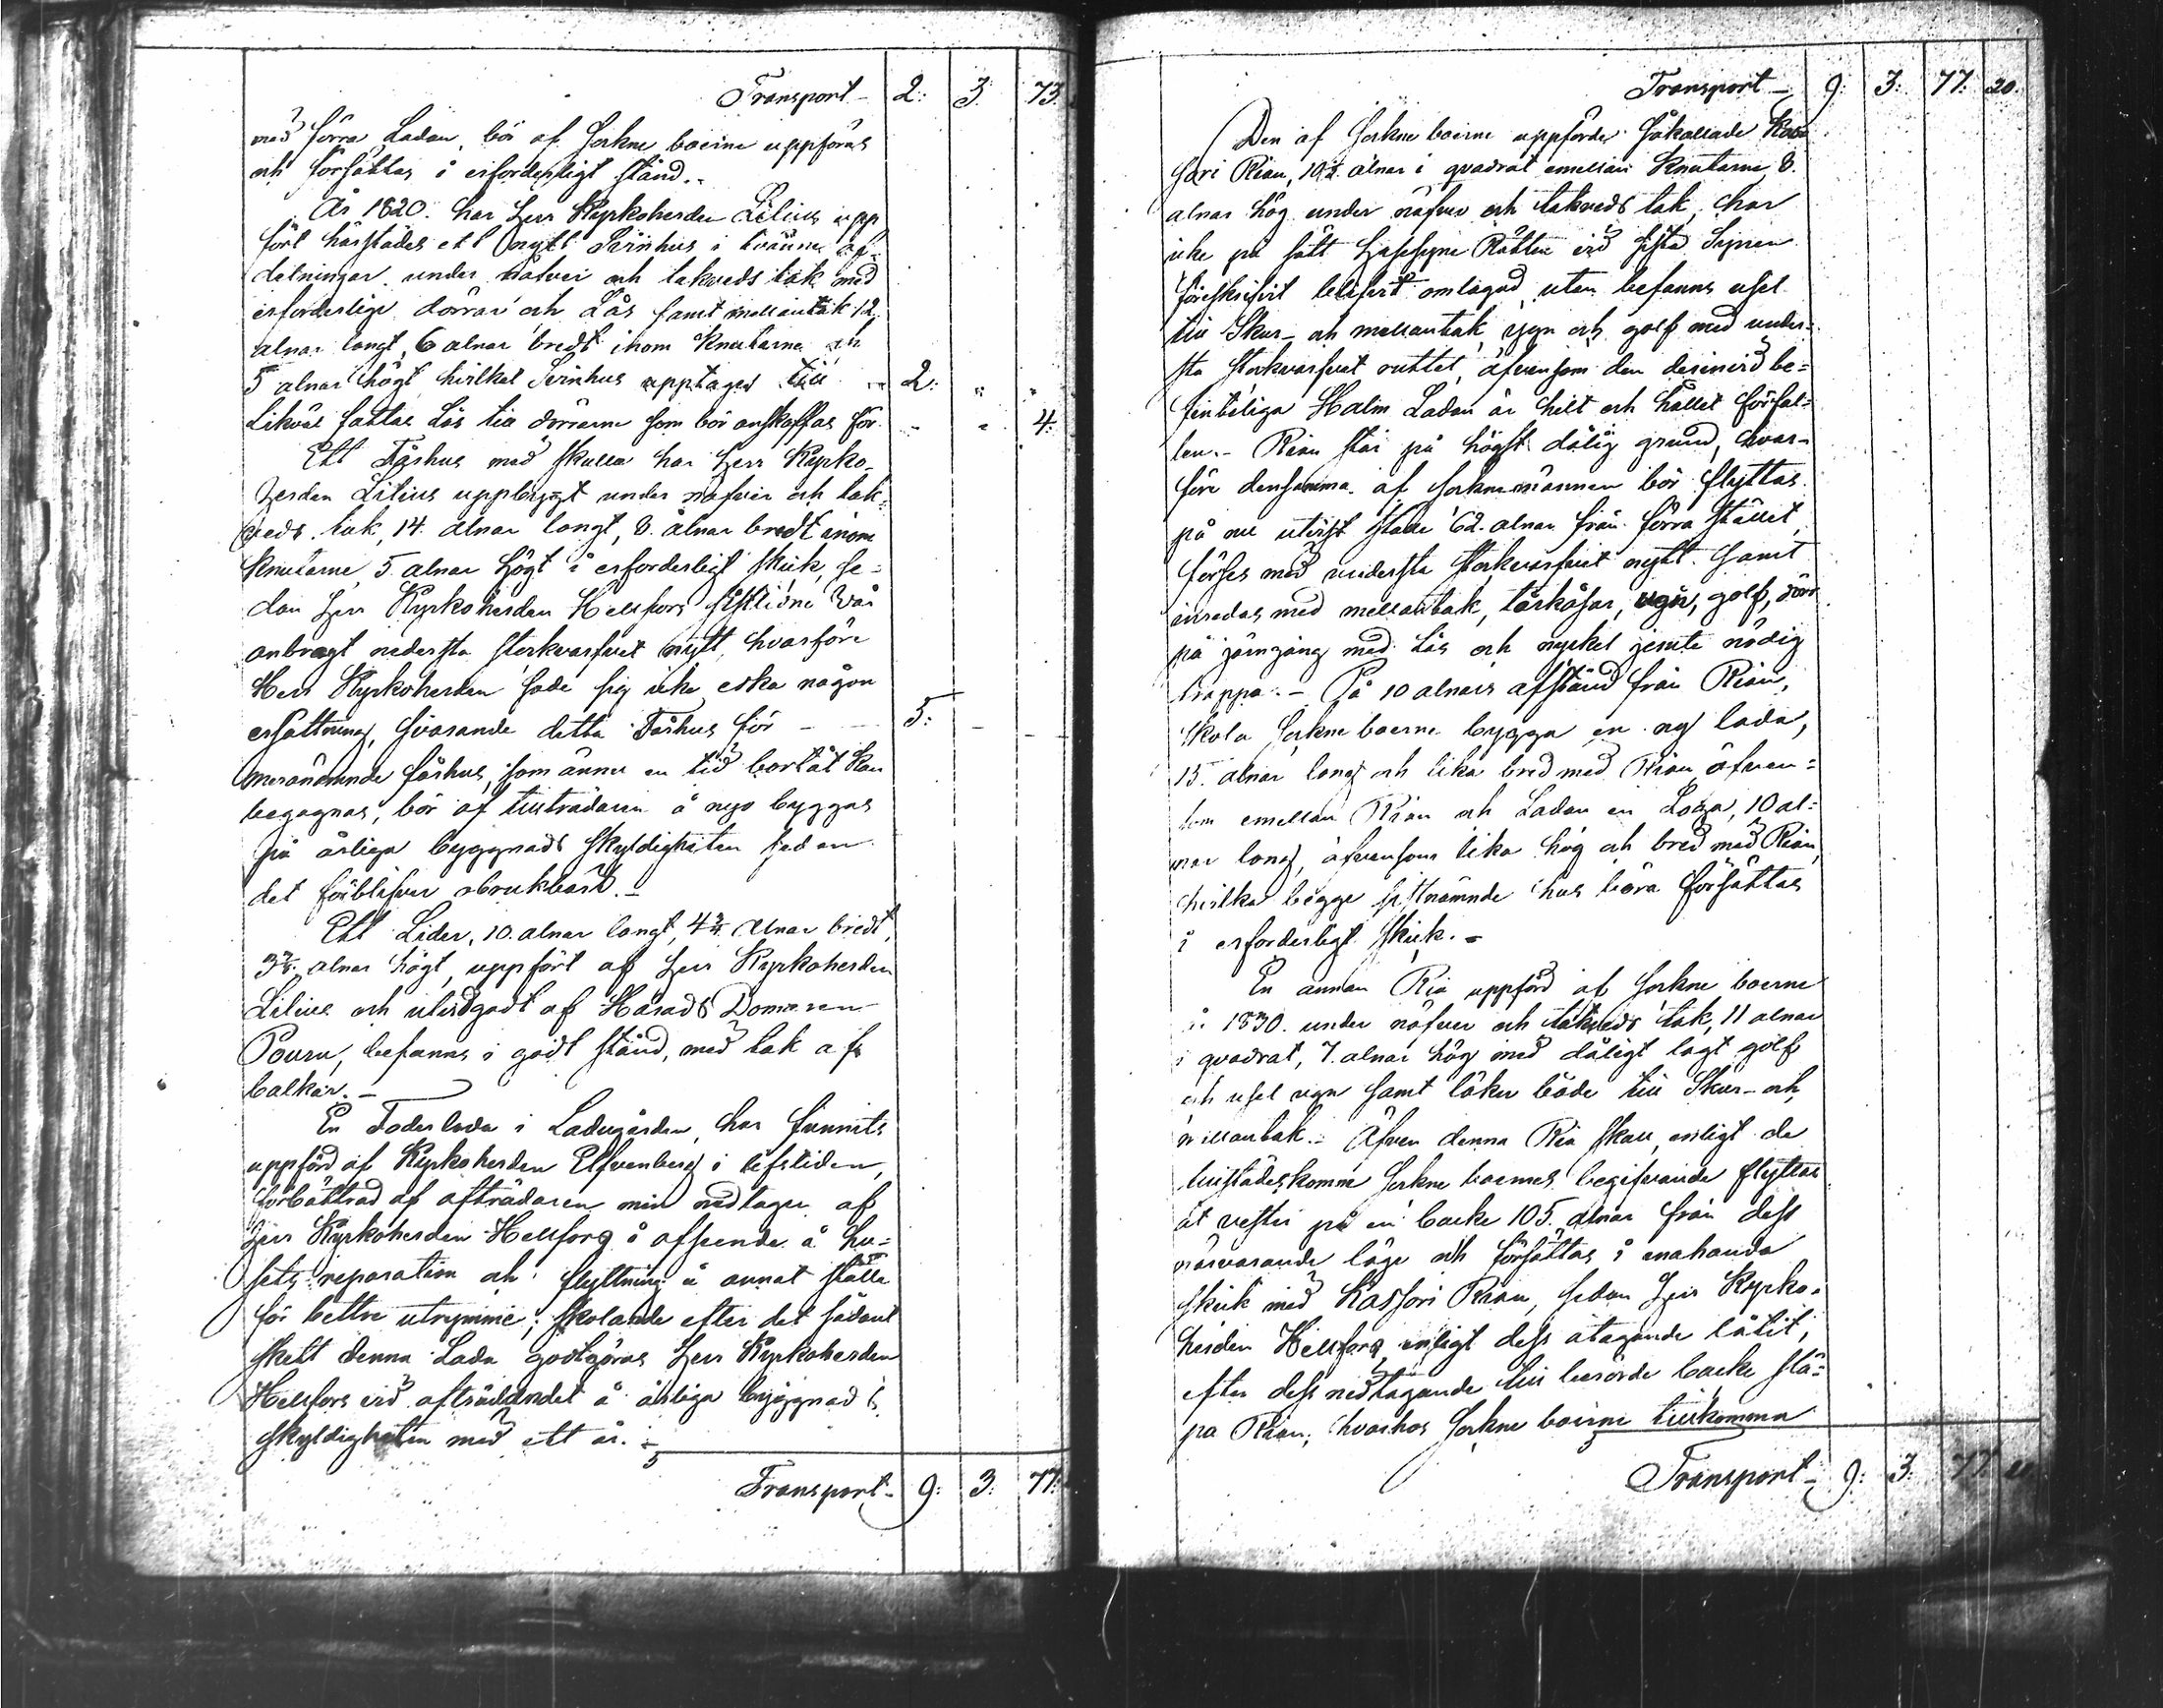 Transport - 2: 3. 73.
med förra Ladan, bör af Sockne boerne uppföras
och försättas i erforderligt stånd.-
År 1820. har Herr Kyrkoherden Lilius upp
fört härstädes ett nytt Svinhus i tvänne af-
delningar under näfver och takveds tak med
erforderlige dörrar och Lås samt mellantak 12
alnar långt, 6 alnar bredt inom Knutarne och
5 alnar högt hvilket Svinhus upptages till " 2: " "
Likväl fattas Lås till dörrarne som bör anskaffas för - - 4:
Ett Fårhus med skulla har Herr Kyrko-
herden Lilius uppbygt under näfver och tak-
veds tak, 14. alnar långt, 8. alnar bredt inom
Knutarne, 5. alnar högt i erforderligt skick, se-
dan Herr Kyrkoherden Hellfors sistlidne Vår
anbragt nedersta stockvarfvet nytt, hvarföre
Herr Kyrkoherden sade sig icke äska någon
ersättning, svarande detta Fårhus för - 5: - -
Meranämnde fårhus, som ännu en tid bortåt kan
begagnas, bör af tillträdaren å nyo byggas
på årliga byggnads skyldigheten sedan
det förblifver obrukbart.-
Ett Lider, 10. alnar långt, 4 3/4 alnar bredt,
3 3/4. alnar högt, uppfört af Herr Kyrkoherden
Lilius och utvidgadt af Härads Domaren
Pouru, befanns i godt stånd, med tak af
balkar.-
En Foderlada i Ladugården, har funnits
uppförd af Kyrkoherden Elfvenberg i lifstiden,
förbättrad af afträdaren men nedtagen af
Herr Kyrkoherden Hellfors i afseende å hu-
sets reparation och flyttning å annat ställe
för bettre utrymme; skolande efter det sådant
skett denna Lada godtgöras Herr Kyrkoherden
Hellfors vid afträdandet å årliga byggnads
skyldigheten med ett år.-
Transport - 9: 3: 77:
Transport - 9: 3: 77: 20.
Den af Sockne boerne uppförde såkallade
sari Rian, 10 1/2. alnar i qvadrat emellan Knutarne, 8.
alnar hög under näfver och takveds tak, har
icke på sätt Husesyne Rätten vid sista Synen
föreskrifvit blifvit omlagad, utan befanns usel
till Skur- och mellantak, ugn och golf med under-
sta stockvarfvet ruttet, äfvensom den derinvid be-
fintliga Halm Ladan är helt och hållet förfal-
len.- Rian står på högst dålig grund, hvar-
före densamma af Socknemännen bör flyttas
på nu utsist ställe 62. alnar från förra stället,
förses med understa stockvarfvet nytt samt
inredas med mellantak, torkåsar, ugn, golf, dörr
på järngång med Lås och nyckel jemte nödig
trappa.- På 10 alnars afstånd från Rian,
skola Sockne boerne bygga en ny lada,
15. alnar lång och lika bred med Rian äfven-
som emellan Rian och Ladan en Loga, 10 al-
nar lång, äfvensom lika hög och bred med Rian
hvilka bägge sistnämnde hus böra försättas
i erforderligt skick.-
En annan Ria uppförd af Sockne boerne
år 1830. under näfver och takveds tak, 11 alnar
i qvadrat, 7. alnar hög med dåligt lagt golf
och usel ugn samt läker både till Skur- och
mellantak.- Äfven denna Ria skall, enligt de
tillstädeskomne Sockne boernes begifvande flyttas
åt vester på en backe 105. alnar från dess
närvarande läge och försättas i enahanda
skick med Kassari Rian, sedan Herr Kyrko-
herden Hellfors enligt dess åtagande låtit,
efter dess nedtagande till berörde backe slä-
pa Rian; hvarhos Sockne boerne tillkomma
Transport - 9: 3: 77: 20